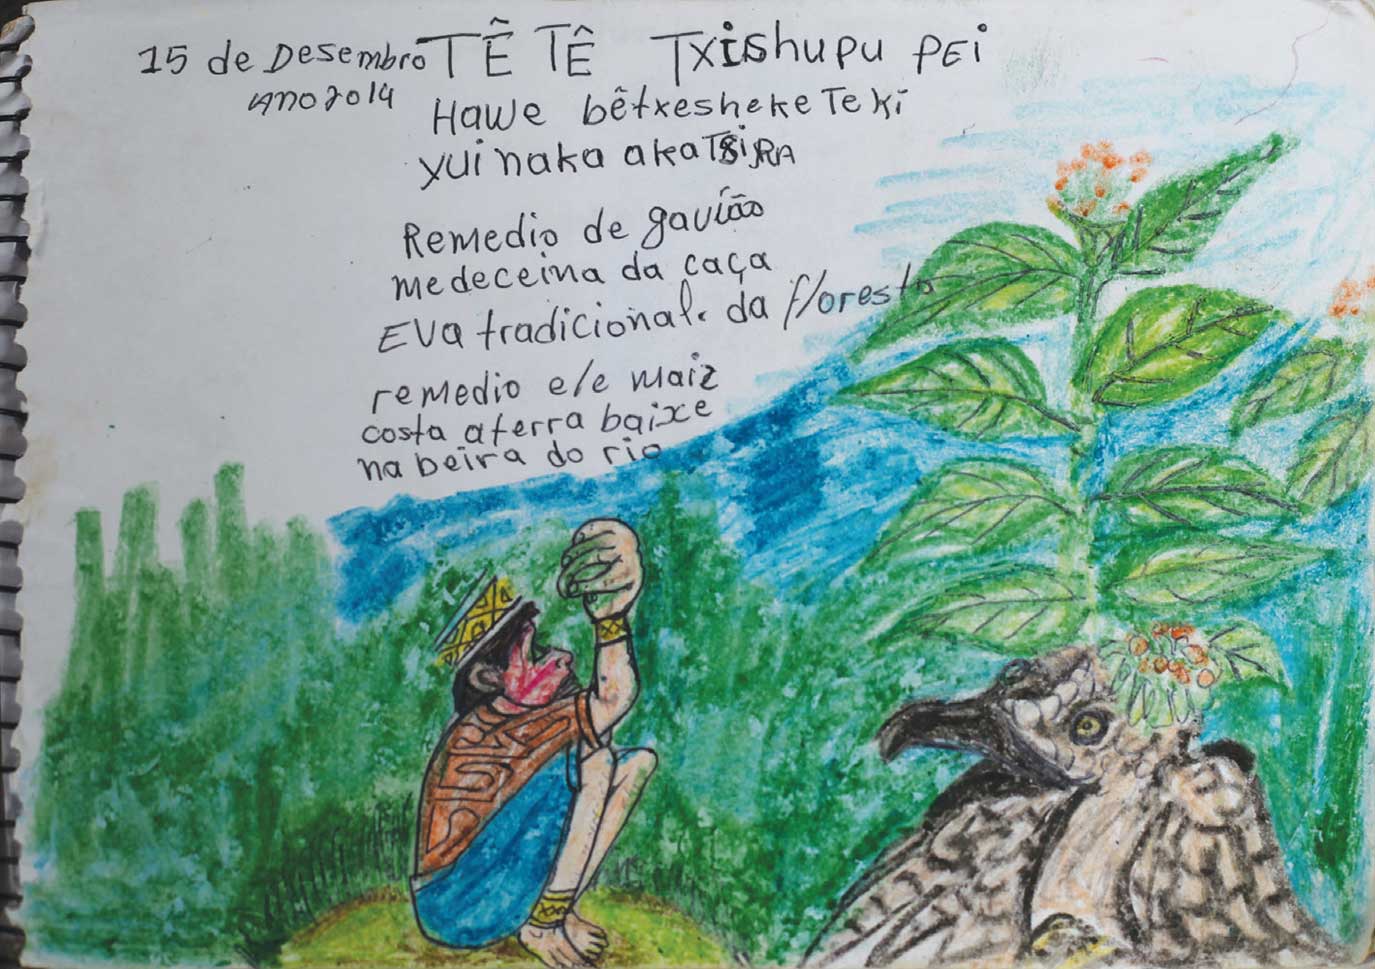 15 de Desembro
Ano 2014
TÊ TÊ Txishupu PEi
Hawe bêtxesheke Teki
yui naka akaTsiRA
Remedio de gavião
medeceina da caça
EVa tradicional. da floresta
remedio ele maiz
costa aterra baixe
na beira do rio